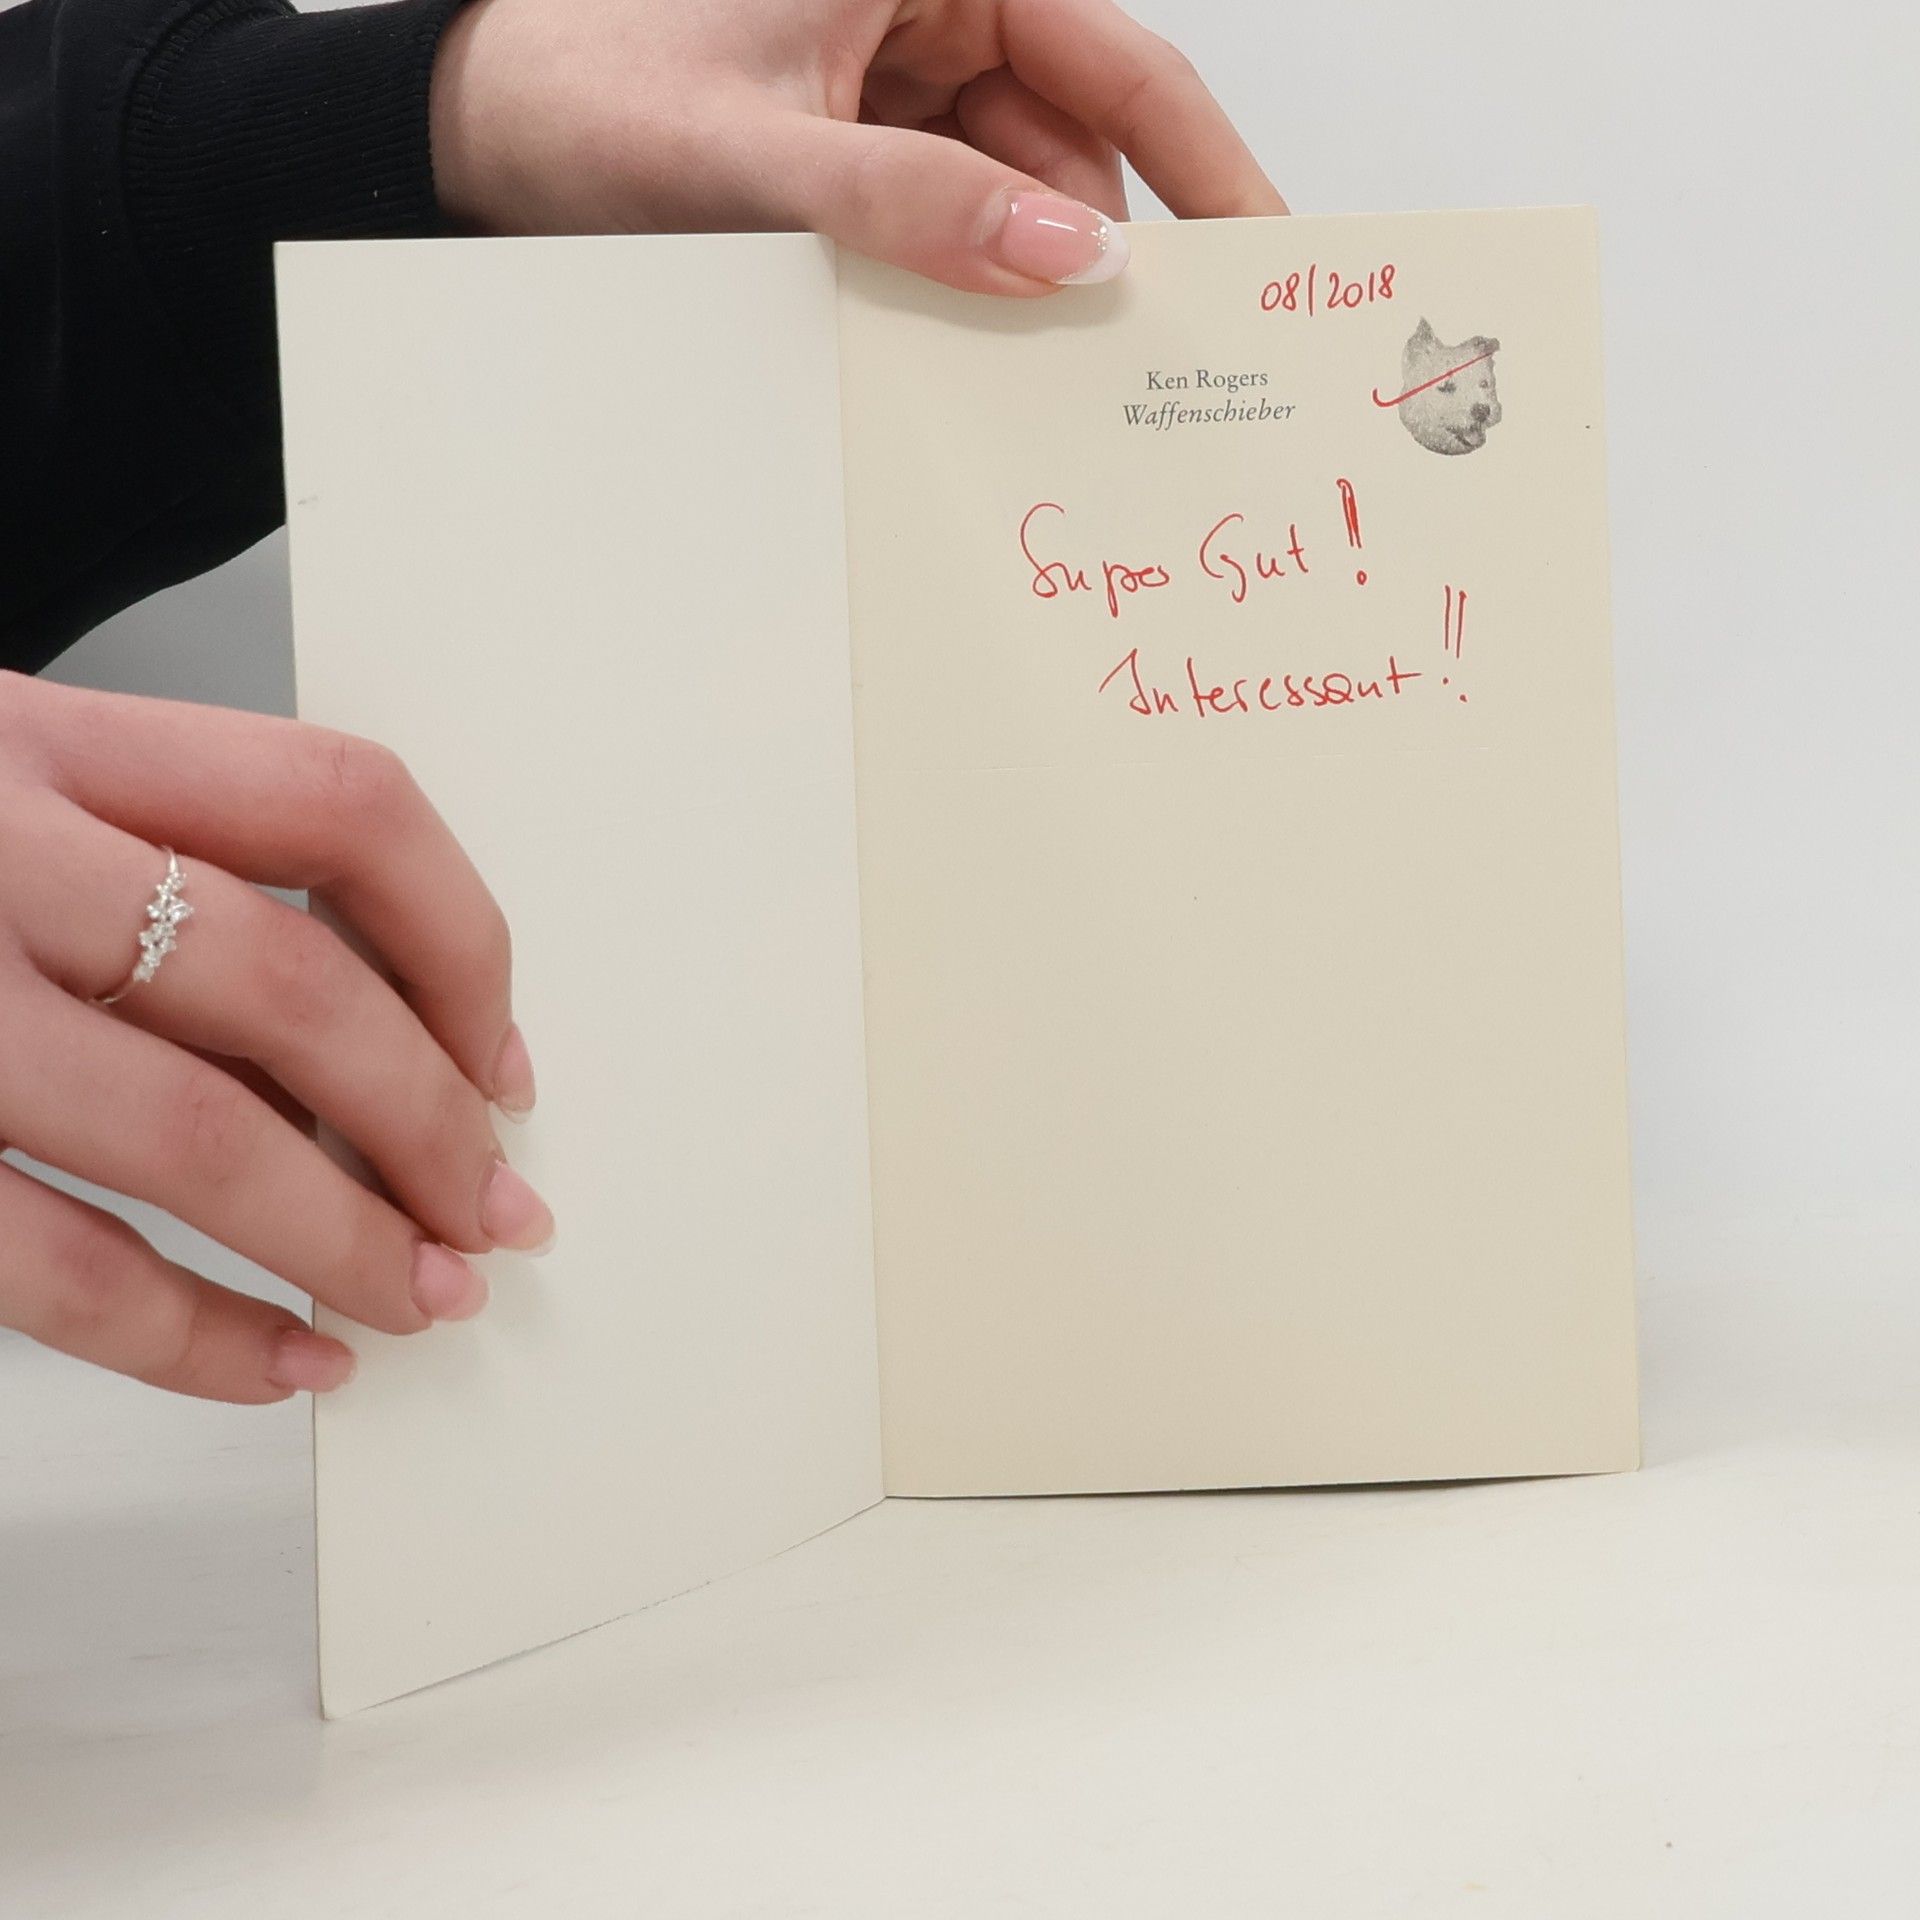 08/2018
Ken Rogers
Waffenschieber
Super Gut!
Interessant!!